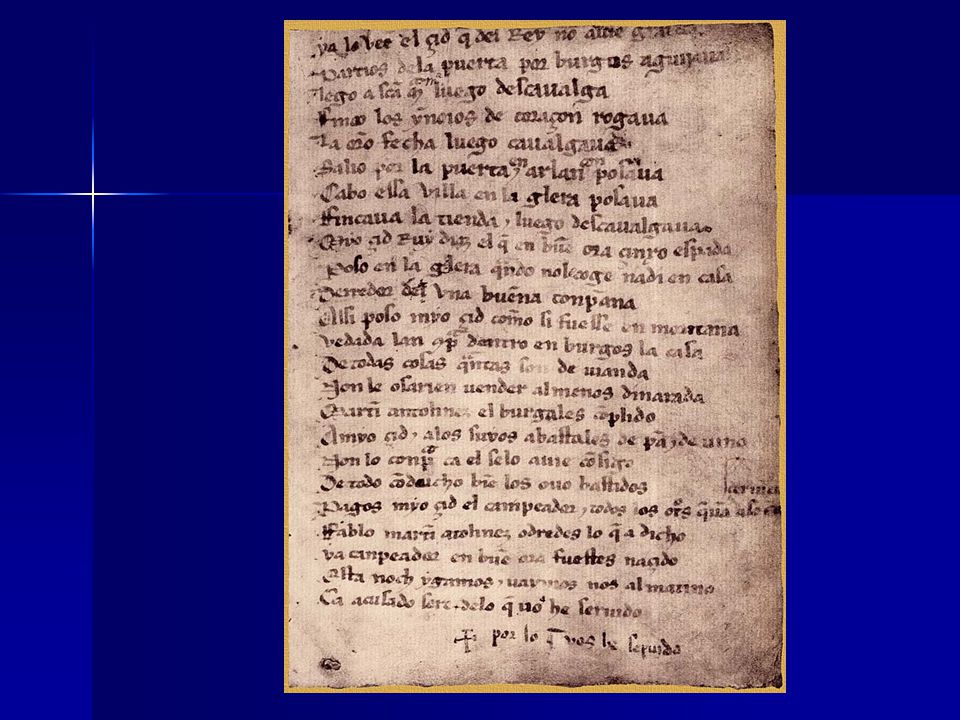 ya lo vee el çid q̃ del Rey no avie gra
Partios dela puerta por burgos aguijaua
lego a sc̃a mª luego descavalga
finco los yneios de coraçon rogaua
La orõ fecha luego caualgaua
Salio por la puerta ⁊ en arlançon posaua
Cabo essa villa en la glera posaua
Fincaua la tienda ⁊ luego descaualgaua
Myo çid Ruy diaz el q̃ en buẽ ora çinxo espada
Poso en la glera q̃ndo nol coge nadi en casa
Derredor del vna buena conpaña
Assi poso myo çid com̃o si fuesse en montaña
Vedada lan conpª dentro en burgos la casa
De todas cosas q̃ntas son de uianda
Non le osarien uender al menos dinarada
Martĩ antolinez el burgales cõplido
A myo çid ⁊ alos suyos abastales de pã ⁊ de uino
Non lo conpª ca el selo auie cõsigo
De todo cõducho biẽ los ouo bastidos
Pagos myo çid el campeador ⁊ todos los otºs q̃
Fablo martĩ atolinez odredes lo q̃ a dicho
ya canpeador en buẽ ora fuestes naçido
Esta noch ygamos ⁊ uaymos nos al matino
Ca acusado sere delo q̃ uos he seruido
por lo q̃ vos he seruido